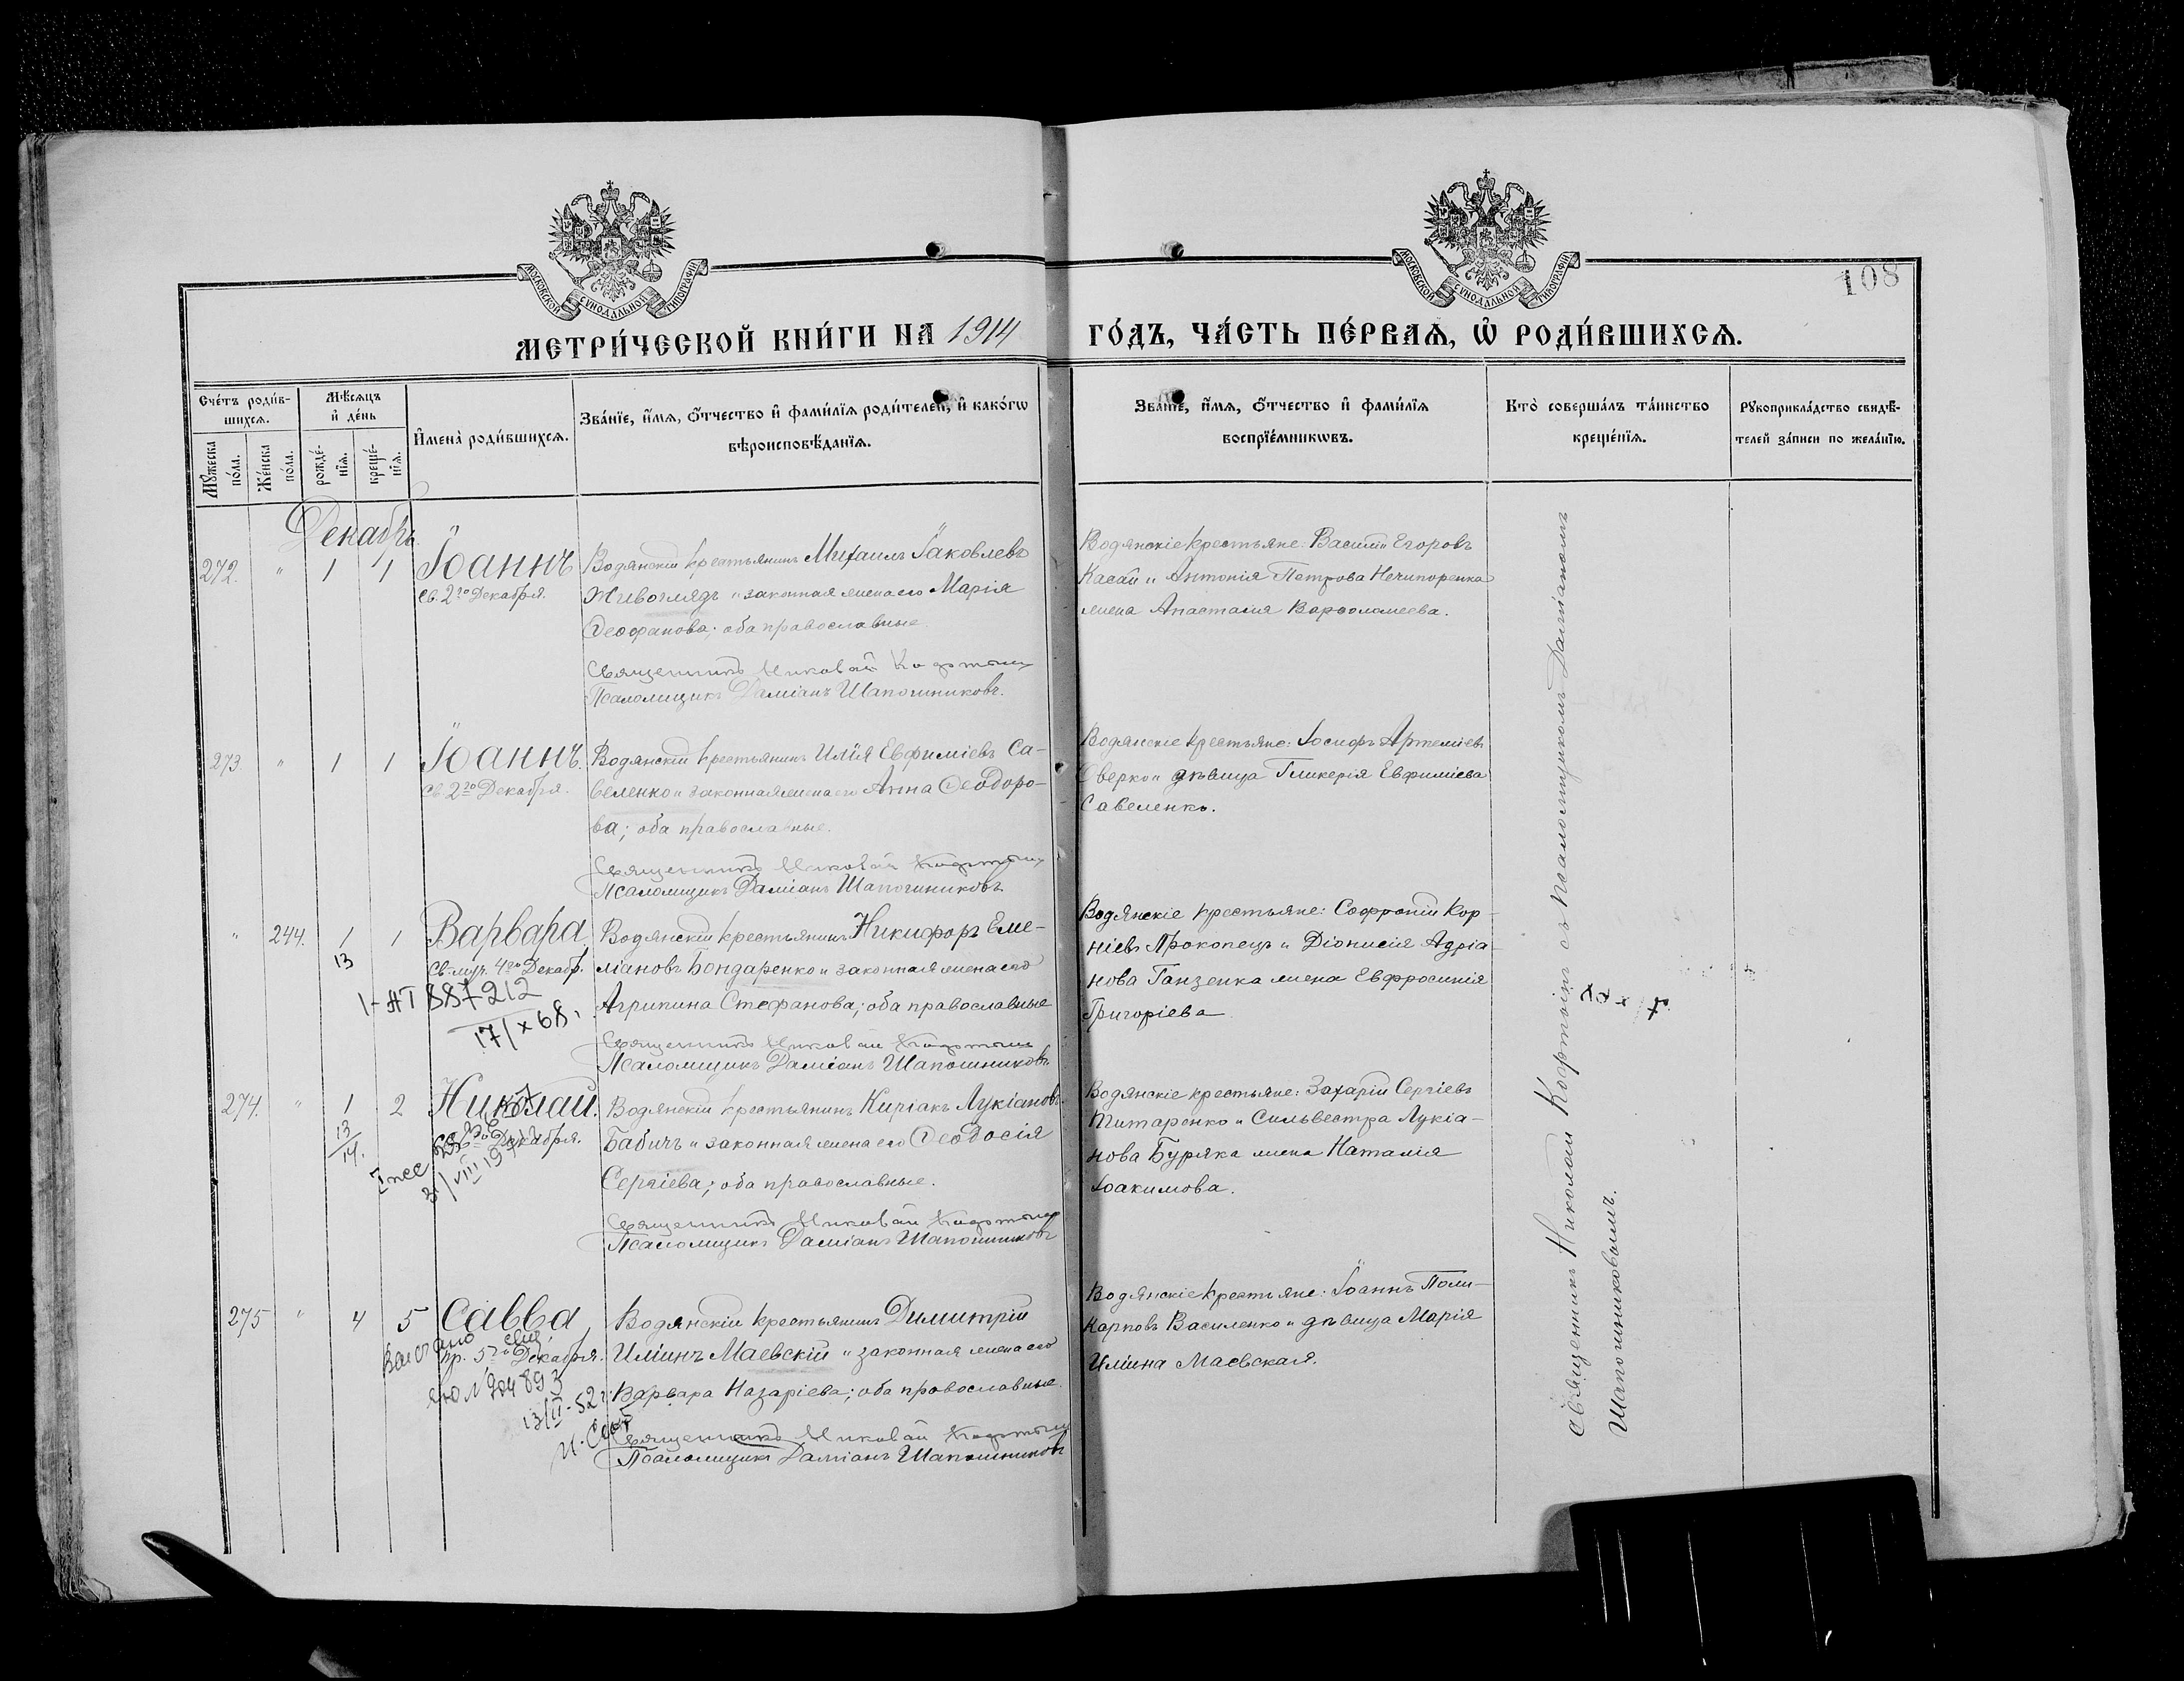 МОСКОВСКОЙ СѴНОДАЛЬНОЙ ТИПОГРАФІИ
МОСКОВСКОЙ СѴНОДАЛЬНОЙ ТИПОГРАФІИ
108
МЕТРИ́ЧЕСКОЙ КНИ́ГИ НА 1914 ГО́ДЪ, ЧА́СТЬ ПЕ́РВАѦ, Ѡ҆ РОДИ́ВШИХСѦ.
Сче́тъ роди́в-
шихсѧ.
Мꙋ́жеска
по́ла.
Же́нска
по́ла.
Мѣ́сѧцъ
и҆ де́нь
рожде́-
нїѧ.
креще́-
нїѧ.
И҆мена̀ роди́вшихсѧ.
Зва́нїе, и҆́мѧ, ѻ҆́тчество и҆ фами́лїѧ роди́телей, и҆ како́гѡ
вѣроисповѣ́данїѧ.
Зва́нїе, и҆́мѧ, ѻ҆́тчество и҆ фами́лїѧ
воспрїе́мникѡвъ.
Кто̀ соверша́лъ та́инство
креще́нїѧ.
Рꙋкоприкла́дство свидѣ́-
телей за́писи по жела́нїю.
Декабрь
272. " 1 1 Іоаннъ
св. 2го Декабря.
Водянскій крестьянинъ Михаилъ Іаковлевъ
Живоглядъ и законная жена его Марія
Ѳеофанова; оба православные
Священникъ Николай
Псаломщикъ Даміанъ Шапошниковъ.
Водянскіе крестьяне: Василій Егоровъ
Касай и Антонія Петрова Нечипоренка
жена Анастасія Варѳоломеева.
273. " 1 1 Іоаннъ.
св. 2го Декабря.
Водянскій крестьянинъ Илія Евфиміевъ Са-
веленко и законная жена его Анна Ѳеодоро-
ва; оба православные.
Священникъ Николай
Псаломщикъ Даміанъ Шапошниковъ
Водянскіе крестьяне: Іосифъ Артеміевъ
Оверко и дѣвица Гликерія Евфиміева
Савеленко.
" 244. 1 1 Варвара
13
св. муч. 4го Декабр.
1-АТ 887212
17/х 68.
Водянскій крестьянинъ Никифоръ Еме-
ліановъ Бондаренко и законная жена его
Агрипина Стефанова; оба православные
Священникъ Николай
Псаломщикъ Даміанъ Шапошниковъ
Водянскіе крестьяне: Софроній Кор-
ніевъ Прокопецъ и Діонисія Адріа-
нова Ганзенка жена Евфросинія
Григоріева
274. " 1 2 Николай.
13
14.
Декабря.
Водянскій крестьянинъ Киріакъ Лукіановъ
Бабичъ и законная жена его Ѳеодосія
Сергіева; оба православные.
Священникъ Николай
Псаломщикъ Даміанъ Шапошниковъ
Водянскіе крестьяне: Захарій Сергіевъ
Титаренко и Сильвестра Лукіа-
нова Буряка жена Наталія
Іоакимова.
275 " 4 5 Савва
пр. 5го Декабря.
Водянскій крестьянинъ Димитрій
Иліинъ Маевскій и законная жена его
Варвара Назаріева; оба православные
Священникъ Николай
Псаломщикъ Даміанъ Шапошниковъ
Водянскіе крестьяне: Іоаннъ Поли-
карповъ Василенко и дѣвица Марія
Иліина Маевская.
Священникъ Николай съ псаломщикомъ Даміаномъ
Шапошниковымъ.